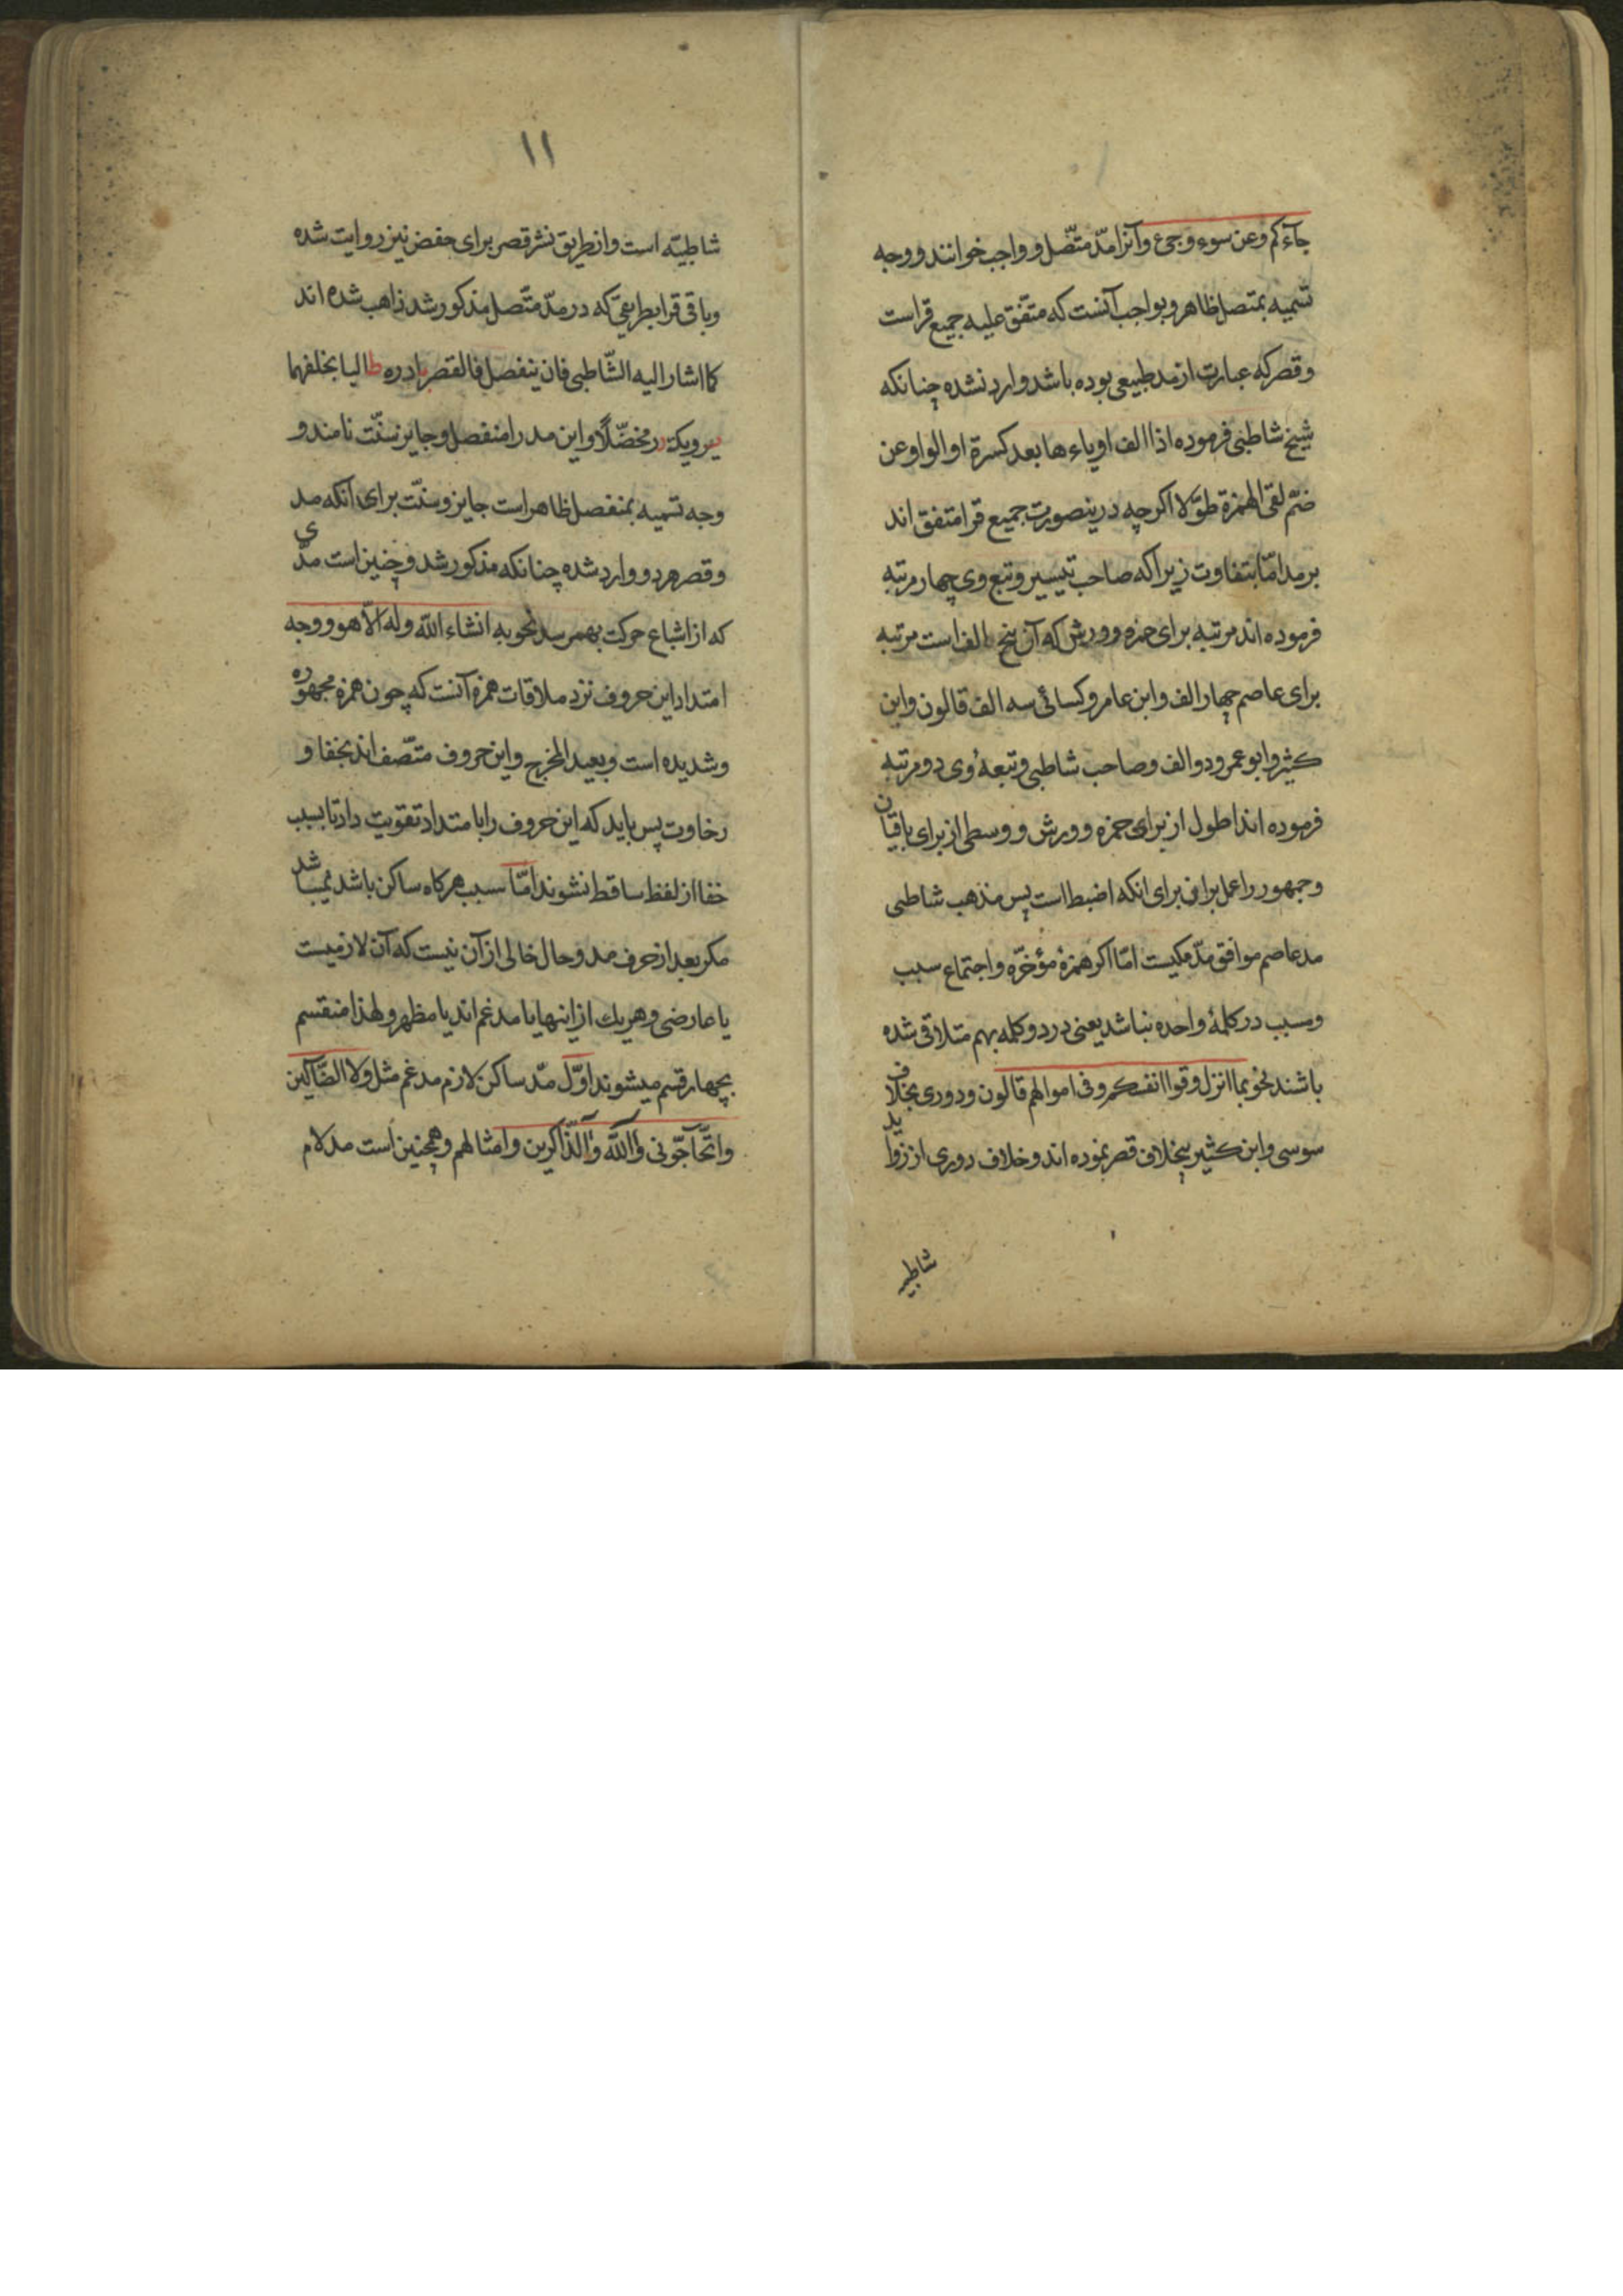 جآءکم و عن سوء و جیء و آنرا مدّ متّصل و واجب خوانند و وجه
تسمیه بمتصل ظاهر و بواجب آنست که متّفق علیه جمیع قراست
و قصر که عبارت از مد طبیعی بوده باشد وارد نشده چنانکه
شیخ شاطبی فرموده اذا الف او یاءها بعد کسرة او الواو عن
ضمّ لقی الهمزة طوّلا اکرچه درینصورت جمیع قرا متفق اند
بر مد امّا بتفاوت زیرا که صاحب تیسیر و تبع وی چهار مرتبه
فرموده اند مرتبه برای حمزه و ورش که آن پنج الف است مرتبه
برای عاصم چهار الف و ابن عامر و کسائی سه الف قالون و ابن
کثیر و ابو عمرو دو الف و صاحب شاطبی و تبعهٔ وی دو مرتبه
فرموده اند اطول از برای حمزه و ورش و وسطی از برای باقیان
و جمهور را عمل بر این برای انکه اضبط است پس مذهب شاطبی
مد عاصم موافق مدّ مکیست امّا اکر همزهٔ مؤخّره و اجتماع سبب
و سبب در کلمهٔ واحده نباشد یعنی در دو کلمه بهم متلاقی شده
باشند نحو بما انزل و قوا انفسکم و فی اموالهم قالون و دوری بخلاف
سوسی و ابن کثیر بیخلاف قصر نموده اند و خلاف دوری از زواید
شاطبیه
۱۱
شاطبیّه است و از طریق نشر قصر برای حفض نیز روایت شده
و باقی قرا بطریقی که در مدّ متّصل مذکور شد ذاهب شده اند
کما اشار الیه الشّاطبی فان ینفصل فالقصر بادره طالبا بخلفهما
یرویک درّ مخضّلاً و این مد را منفصل و جایز سنّت نامند و
وجه تسمیه بمنفصل ظاهر است جایز و سنّت برای آنکه مد
و قصر هر دو وارد شده چنانکه مذکور شد و چنین است مدّی
که از اشباع حرکت بهمرسد نحو به انشاء اللّه و له الّا هو و وجه
امتداد این حروف نزد ملاقات همزه آنست که چون همزه مجهوره
و شدیده است و بعید المخرج و این حروف متّصف اند بخفا و
رخاوت پس باید که این حروف را با متداد تقویت داد تا بسبب
خفا از لفظ ساقط نشوند امّا سبب هرکاه ساکن باشد نمیباشد
مکر بعد از حرف مد و حال خالی از آن نیست که آن لازمیست
یا عارضی و هر یك از اینها یا مدغم اند یا مظهر و لهذا منقسم
بچهار قسم میشوند اوّل مدّ ساکن لازم مدغم مثل ولا الضّآلین
و اتّحآجّونی و آللّه و آلذّاکرین و امثالهم و همچنین است مد لام